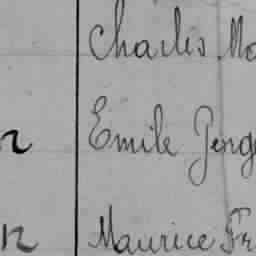 Charles Ma
n Emile Geng
n Maurice Fr